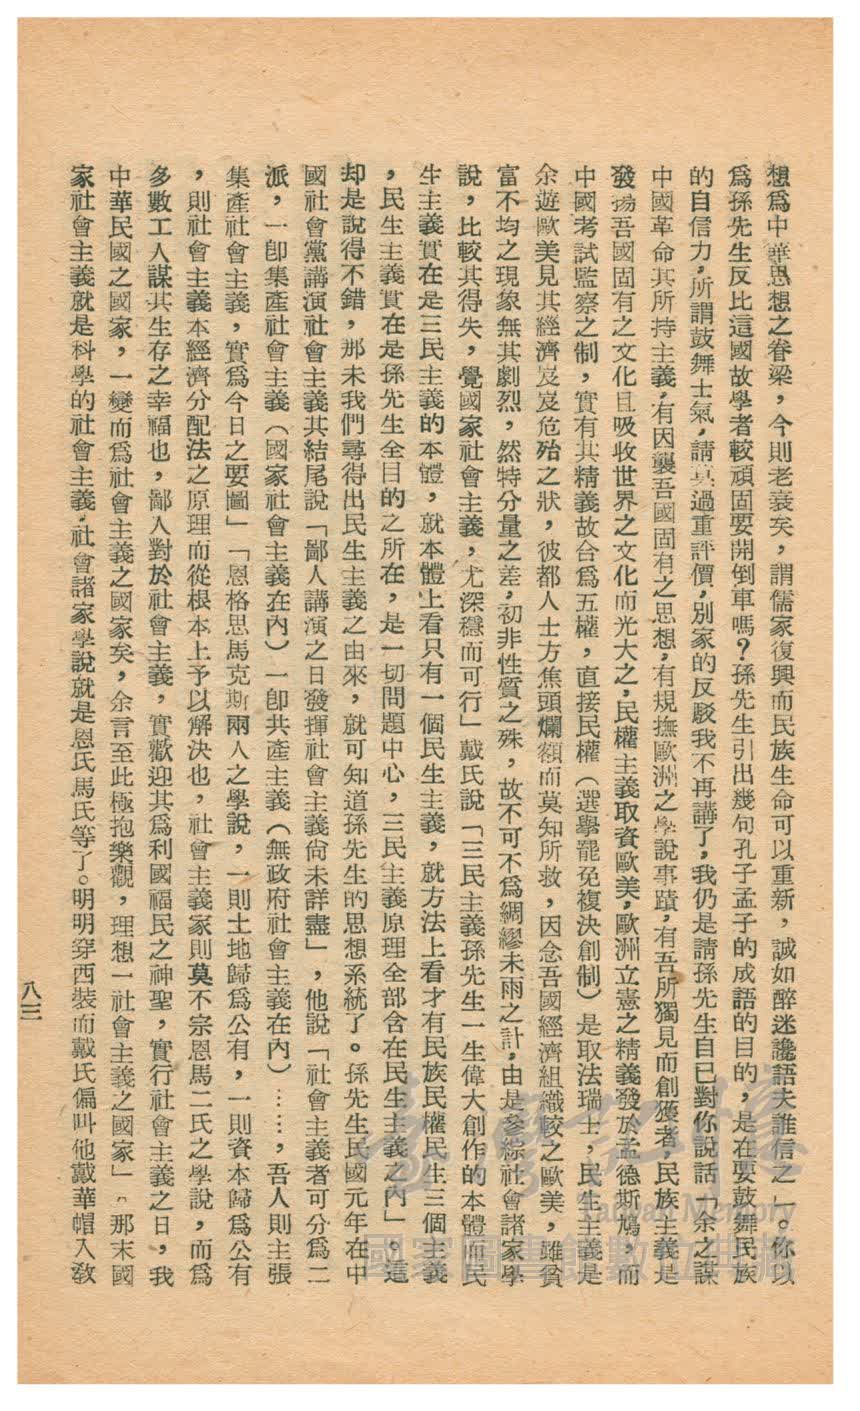 想爲中華思想之眷梁，今則老衰矣，謂儒家復興而民族生命可以重新，誠如醉迷讒語夫誰信之」。你以
爲孫先生反比這國故學者較頑固要開倒車嗎？孫先生引出幾句孔子孟子的成語的目的，是在要鼓舞民族
的自信力，所謂鼓舞士氣，請 過重評價，別家的反駁我不再講了，我仍是請孫先生自己對你說話「余之謀
中國革命其所持主義，有因襲吾國固有之思想，有規撫歐洲之學說事蹟，有吾所獨見而創獲者，民族主義是
發揚吾國固有之文化且吸收世界之文化而光大之，民權主義取資歐美，歐洲立憲之精義發於孟德斯鳩，而
中國考試監察之制，實有其精義故合爲五權，直接民權（選舉罷免複決創制）是取法瑞士，民生主義是
余遊歐美見其經濟岌岌危殆之狀，彼都人士方焦頭爛額而莫知所救，因念吾國經濟組織較之歐美，雖貧
富不均之現象無其劇烈，然特分量之差，初非性質之殊，故不可不爲綢繆未雨之計，由是參綜社會諸家學
說，比較其得失，覺國家社會主義，尤深穩而可行」戴氏說「三民主義孫先生一生偉大創作的本體而民
生主義實在是三民主義的本體，就本體上看只有一個民生主義，就方法上看才有民族民權民生三個主義
，民生主義實在是孫先生全目的之所在，是一切問題中心，三民主義原理全部含在民生主義之內」。這
却是說得不錯，那未我們尋得出民生主義之由來，就可知道孫先生的思想系統了。孫先生民國元年在中
國社會黨講演社會主義其結尾說「鄙人講演之日發揮社會主義尙未詳盡」，他說「社會主義者可分爲二
派，一卽集產社會主義（國家社會主義在內）一卽共產主義（無政府社會主義在內）……，吾人則主張
集產社會主義，實爲今日之要圖」「恩格思馬克斯兩人之學說，一則土地歸爲公有，一則資本歸爲公有
，則社會主義本經濟分配法之原理而從根本上予以解決也，社會主義家則莫不宗恩馬二氏之學說，而爲
多數工人謀其生存之幸福也，鄙人對於社會主義，實歡迎其爲利國福民之神聖，實行社會主義之日，我
中華民國之國家，一變而爲社會主義之國家矣，余言至此極抱樂觀，理想一社會主義之國家」。那末國
家社會主義就是科學的社會主義，社會諸家學說就是恩氏馬氏等了。明明穿西裝而戴氏偏叫他戴華帽入敎
八三
Taiwan Memory
國家圖書館數位典藏